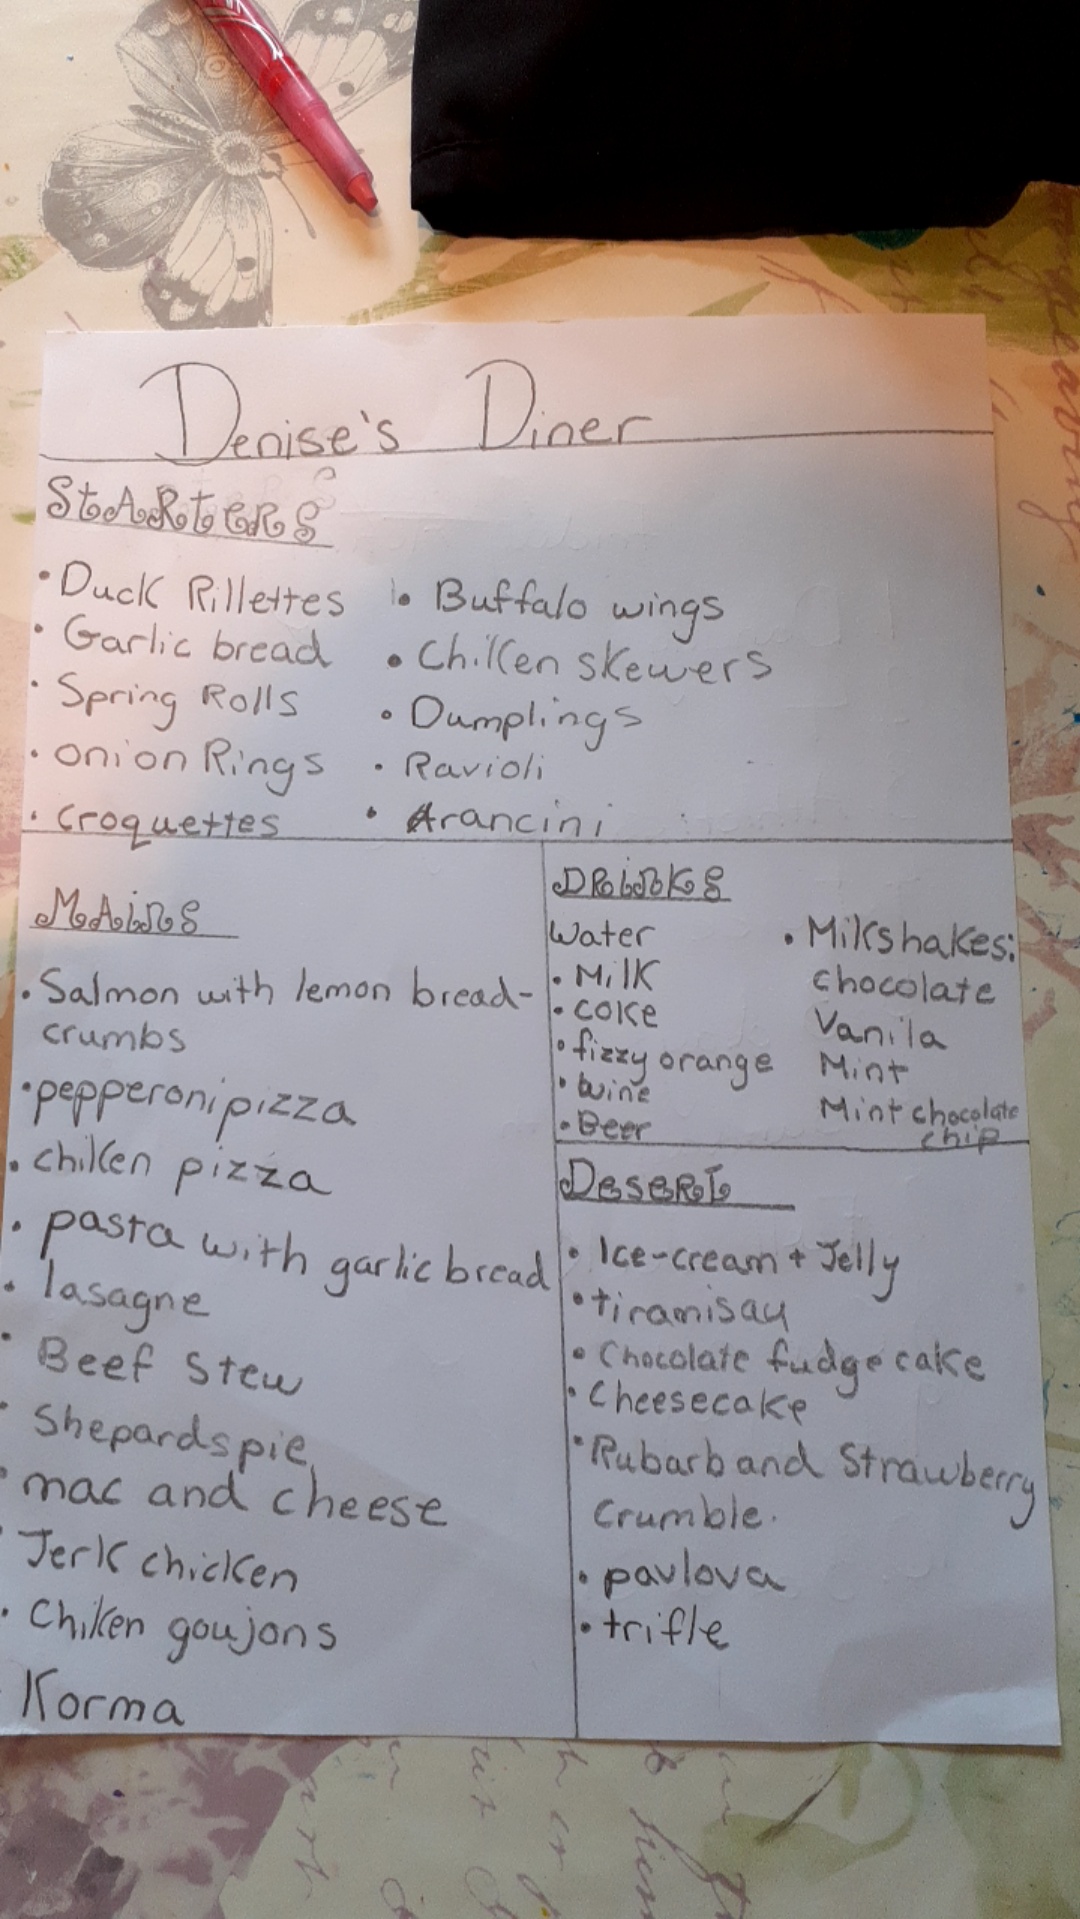 Denise's Diner
StARtERS
• Duck Rillettes
• Garlic bread
• Spring Rolls
• onion Rings
• croquettes
• Buffalo wings
• Chilken skewers
• Dumplings
• Ravioli
• Arancini
MAiNS
• Salmon with lemon bread-
crumbs
• pepperoni pizza
• chilken pizza
• pasta with garlic bread
• lasagne
• Beef Stew
• Shepards pie
• mac and cheese
• Jerk chicken
• Chiken goujons
Korma
DRiNKS
Water
• Milk
• coke
• fizzy orange
• wine
• Beer
• Milkshakes:
chocolate
Vanila
Mint
Mint chocolate
chip
DESERt
• Ice-cream + Jelly
• tiramisau
• Chocolate fudge cake
• Cheesecake
• Rubarb and Strawberry
Crumble.
• pavlova
• trifle